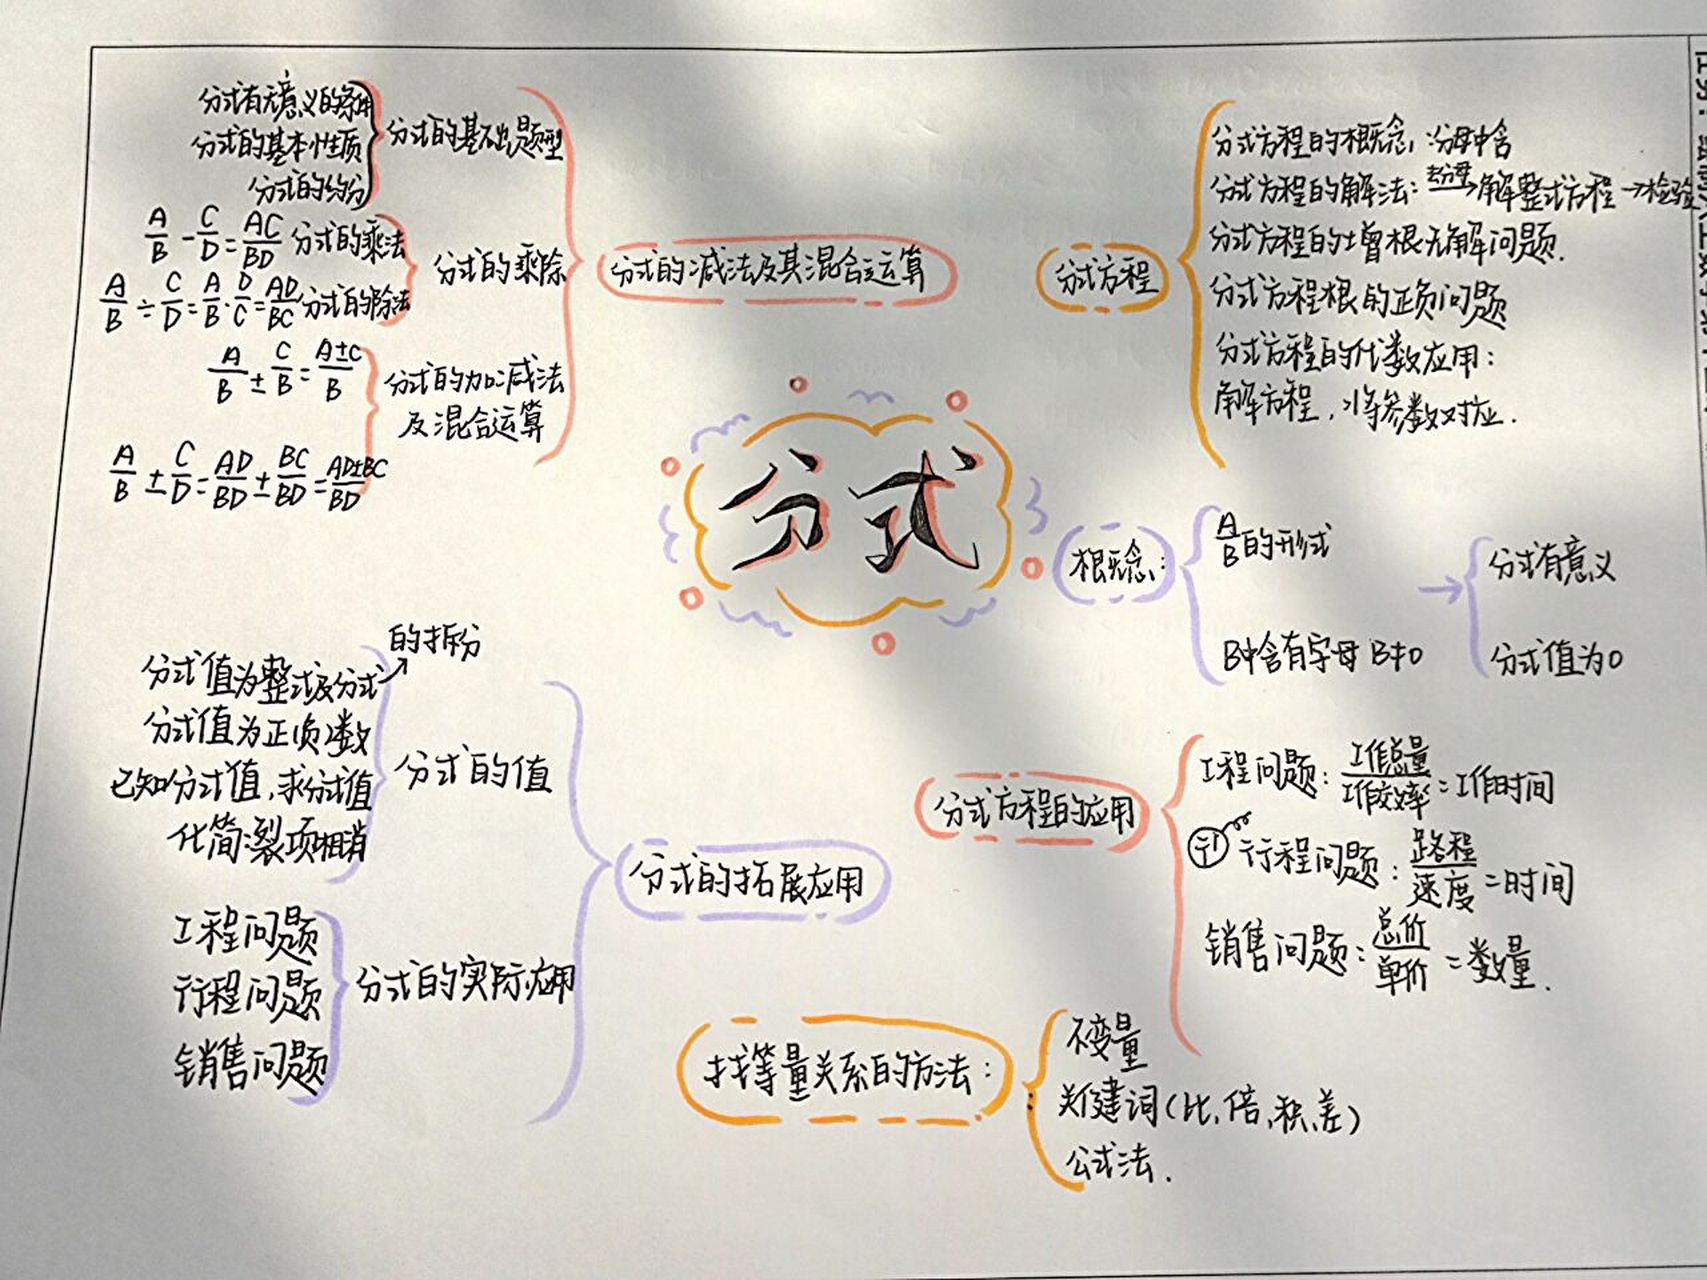 分式
分式的减法及其混合运算
分式的基础题型
分式有无意义的条件
分式的基本性质
分式的约分
分式的乘除
A/B - C/D = AC/BD 分式的乘法
A/B ÷ C/D = A/B · D/C = AD/BC 分式的除法
分式的加减法
及混合运算
A/B ± C/B = A±C/B
A/B ± C/D = AD/BD ± BC/BD = AD±BC/BD
分式方程
分式方程的概念: 分母中含
分式方程的解法: 去分母→解整式方程→检验
分式方程的增根无解问题.
分式方程根的正负问题
分式方程的代数应用:
解方程,将参数对应.
概念:
A/B的形式
B中含有字母 B≠0
→
分式有意义
分式值为0
分式方程的应用
工程问题: 工作总量/工作效率=工作时间
行程问题: 路程/速度=时间
销售问题: 总价/单价=数量.
找等量关系的方法:
不变量
关键词(比,倍,积,差)
公式法.
分式的拓展应用
分式的值
分式值为整式及分式→的拆分
分式值为正(负)数
已知分式值,求分式值
化简:裂项相消
分式的实际应用
工程问题
行程问题
销售问题